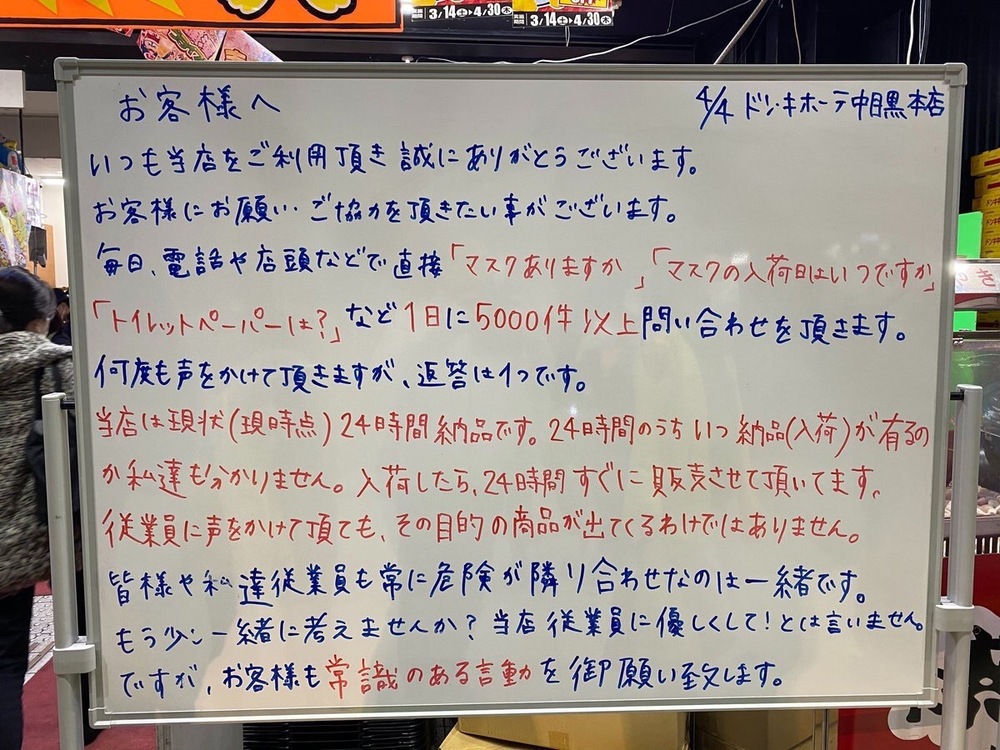 3/14土▶4/30木
実施期間 3/14土▶4/30木
お客様へ
4/4 ドン・キホーテ中目黒本店
いつも当店をご利用頂き誠にありがとうございます。
お客様にお願い・ご協力を頂きたい事がございます。
毎日、電話や店頭などで直接「マスクありますか」「マスクの入荷日はいつですか」
「トイレットペーパーは?」など1日に5000件以上問い合わせを頂きます。
何度も声をかけて頂きますが、返答は1つです。
当店は現状(現時点)24時間納品です。24時間のうちいつ納品(入荷)が有るの
か私達も分かりません。入荷したら、24時間すぐに販売させて頂いてます。
従業員に声をかけて頂ても、その目的の商品が出てくるわけではありません。
皆様や私達従業員も常に危険が隣り合わせなのは一緒です。
もう少し一緒に考えませんか?当店従業員に優しくして!とは言いません。
ですが、お客様も常識のある言動を御願い致します。